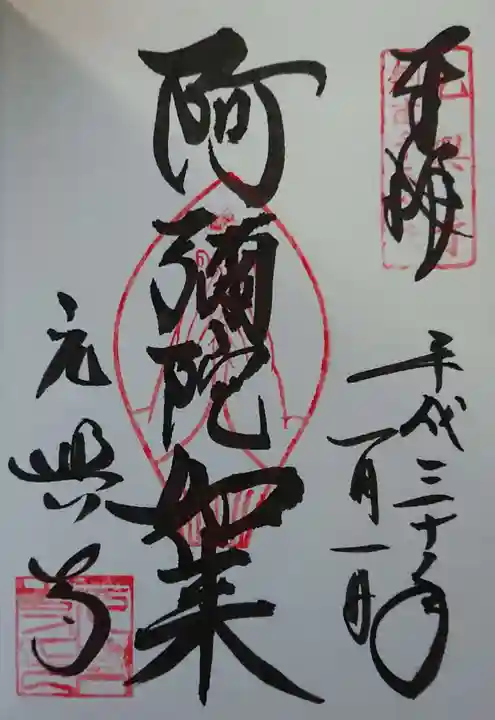 奉拝
平成三十年
一月一日
阿彌陀如来
元興寺